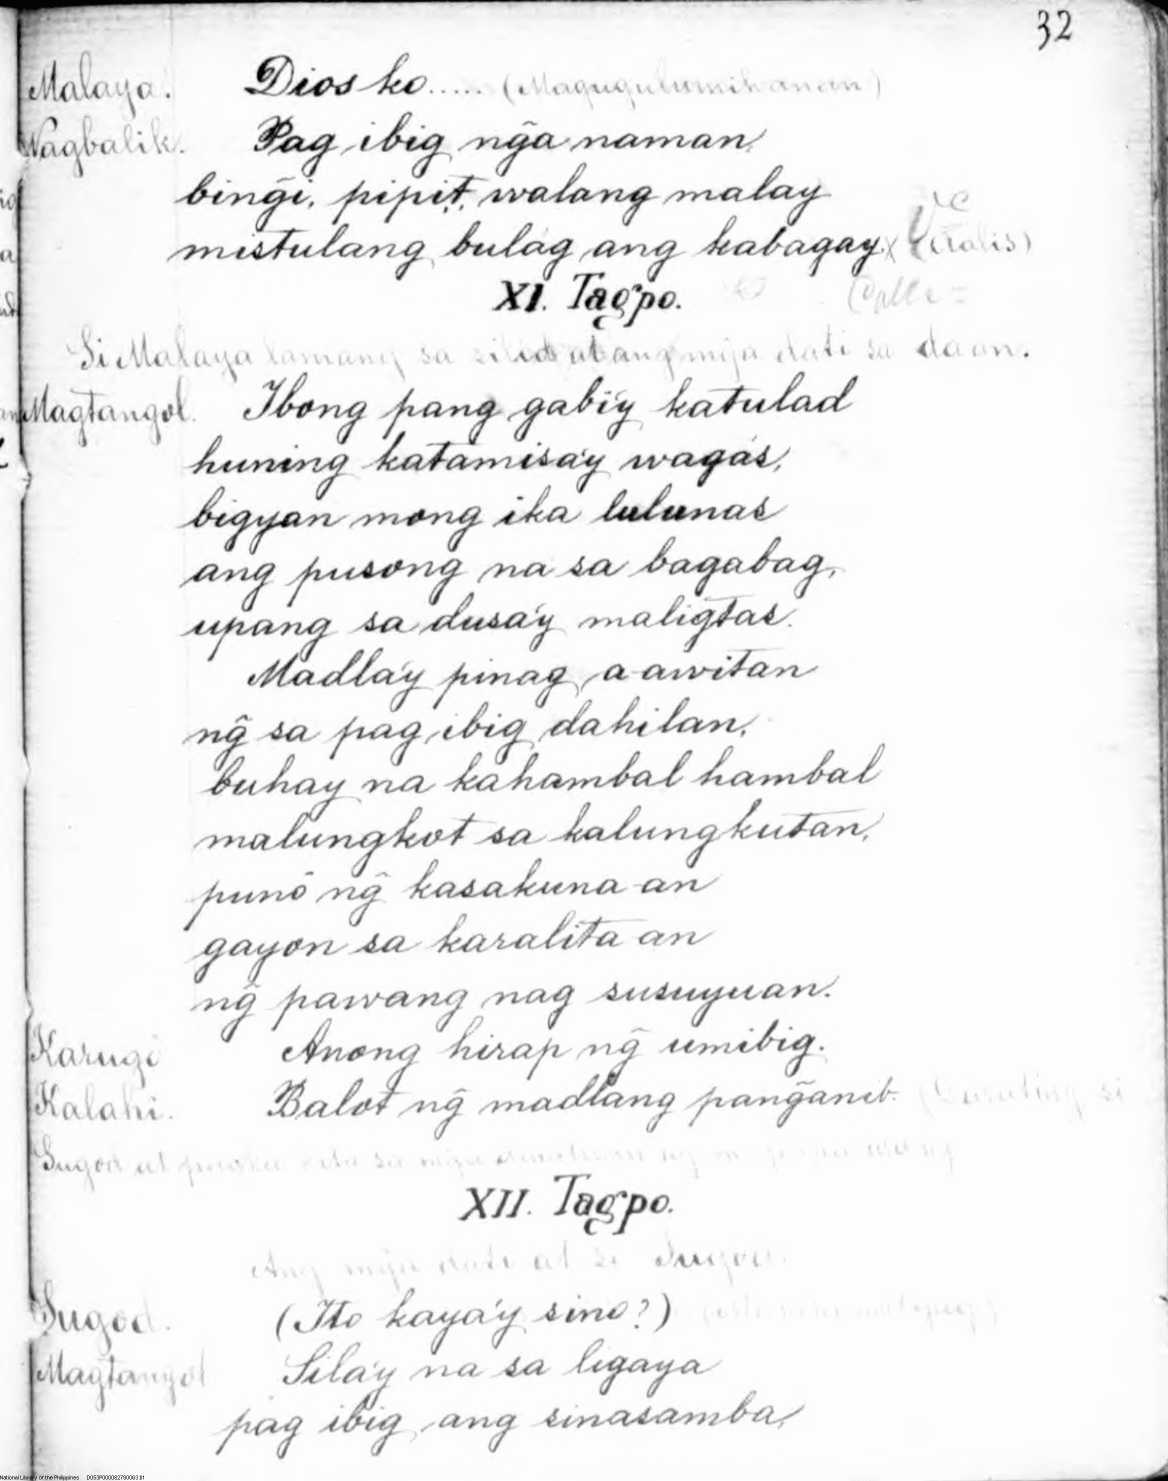 32
Malaya. Dios ko..... (Magugulumihanan)
Nagbalik. Pag ibig ng̃a naman,
bing̃i, pipit, walang malay
mistulang bulág ang kabagay. (Vetalis)
XI. Tagpo.
Si Malaya lamang sa silid at ang mg̃a dati sa daan.
Magtangol. Ibong pang gabi'y katulad
huning katamisa'y wagás,
bigyan mong ika lulunas
ang pusong na sa bagabag,
upang sa dusa'y maligtas.
Madla'y pinag a-awitan
ng̃ sa pag ibig dahilan,
buhay na kahambal hambal
malungkot sa kalungkutan,
punô ng̃ kasakuna-an
gayon sa karalita-an
ng̃ pawang nag susuyuan.
Karugo Anong hirap ng̃ umibig.
Kalahi. Balot ng̃ madlang pang̃anib. (Darating si
Sugod at sa mg̃a
XII. Tagpo.
Ang mg̃a dati at si Sugod.
Sugod. (Ito kaya'y sino?)
Magtangol Sila'y na sa ligaya
pag ibig ang sinasamba,
National Library of the Philippines